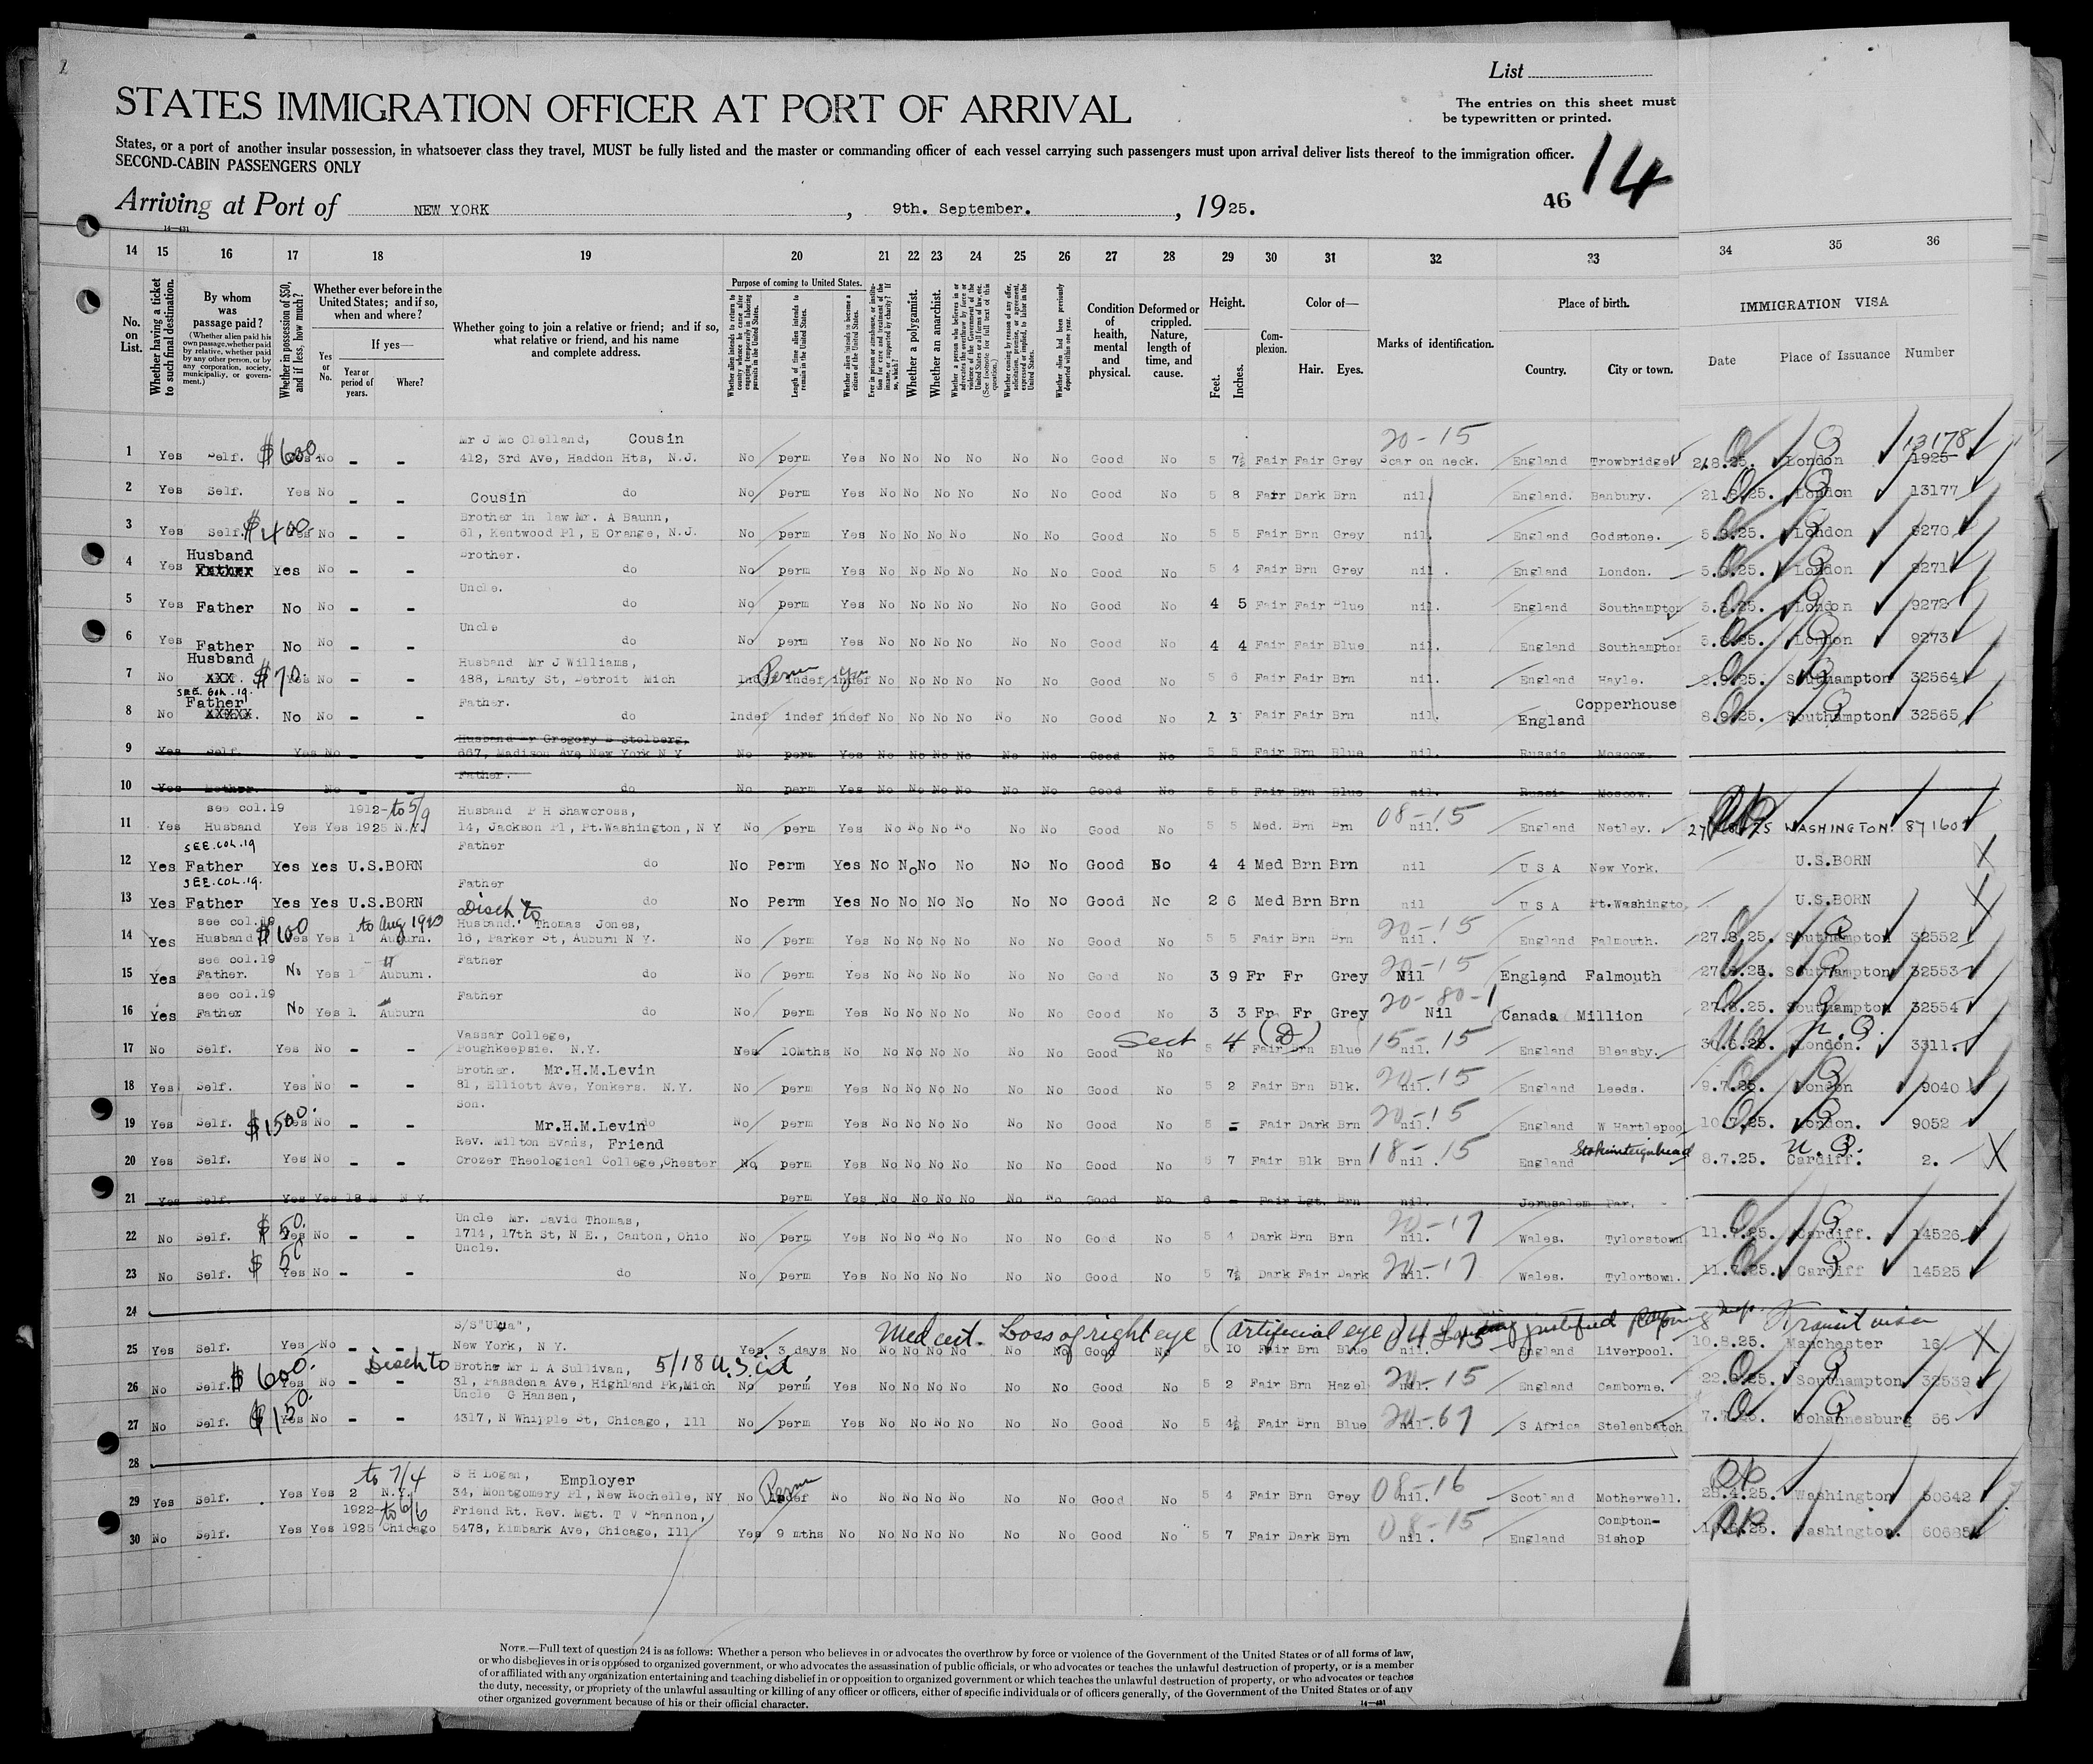 List
STATES IMMIGRATION OFFICER AT PORT OF ARRIVAL
The entries on this sheet must
be typewritten or printed.
States, or a port of another insular possession, in whatsoever class they travel, MUST be fully listed and the master or commanding officer of each vessel carrying such passengers must upon arrival deliver lists thereof to the immigration officer.
SECOND-CABIN PASSENGERS ONLY
14
46
Arriving at Port of NEW YORK, 9th. September., 1925.
14—431
14 15 16 17 18 19 20 21 22 23 24 25 26 27 28 29 30 31 32 33 34 35 36
No. on List.
Whether having a ticket to such final destination.
By whom was passage paid?
(Whether alien paid his own passage, whether paid by relative, whether paid by any other person, or by any corporation, society, municipality, or government.)
Whether in possession of $50, and if less, how much?
Whether ever before in the United States; and if so, when and where?
Yes or No.
If yes—
Year or period of years.
Where?
Whether going to join a relative or friend; and if so, what relative or friend, and his name and complete address.
Purpose of coming to United States.
Whether alien intends to return to country whence he came after engaging temporarily in laboring pursuits in the United States.
Length of time alien intends to remain in the United States.
Whether alien intends to become a citizen of the United States.
Whether a polygamist.
Whether an anarchist.
Condition of health, mental and physical.
Deformed or crippled. Nature, length of time, and cause.
Height.
Feet. Inches.
Complexion.
Color of—
Hair. Eyes.
Marks of identification.
Place of birth.
Country. City or town.
IMMIGRATION VISA
Date Place of Issuance Number
20-15 13178
1 Yes Self. $600. No - - Mr J Mc Clelland, Cousin
412, 3rd Ave, Haddon Hts, N.J. No perm Yes No No No No No No Good No 5 7½ Fair Fair Grey Scar on neck. England Trowbridge 21.8.25. London 1925
2 Yes Self. Yes No - - Cousin do No perm Yes No No No No No No Good No 5 8 Fair Dark Brn nil. England. Banbury. 21.8.25. London 13177
3 Yes Self. $400 Yes No - - Brother in law Mr. A Baunn,
61, Kentwood Pl, E Orange, N.J. No perm Yes No No No No No No Good No 5 5 Fair Brn Grey nil. England Godstone. 5.9.25. London 9270
4 Yes Husband Yes No - - Brother.
do No perm Yes No No No No No No Good No 5 4 Fair Brn Grey nil. England London. London 9271
5 Yes Father No No - - Uncle.
do No perm Yes No No No No No No Good No 4 5 Fair Fair Blue nil. England Southampton London 9272
6 Yes Father No No - - Uncle
do No perm Yes No No No No No No Good No 4 4 Fair Fair Blue nil. England Southampton London 9273
7 No Husband XXX $70. Yes No - - Husband Mr J Williams,
488, Lanty St, Detroit Mich Perm Yes No No No No No No Good No 5 6 Fair Fair Brn nil. England Hayle. 8.9.25. Southampton 32564
SEE COL. 19.
8 No Father XXXXX. No No - - Father.
do indef indef indef No No No No No No Good No 2 3 Fair Fair Brn nil. England Copperhouse 8.9.25. Southampton 32565
9 Yes Self. Yes No - - Husband Mr Gregory B Stolberg,
667, Madison Ave New York N Y No perm Yes No No No No No No Good No 5 5 Fair Brn Blue nil. Russia Moscow.
10 Yes Mother. No - - Father.
do No perm Yes No No No No No No Good No 5 5 Fair Brn Blue nil. Russia Moscow.
11 Yes see col.19 Husband Yes Yes 1912-to 5/9 1925 N.Y. Husband P H Shawcross,
14, Jackson Pl, Pt.Washington, N Y No perm Yes No No No No No No Good No 5 5 Med. Brn Brn 08-15 nil. England Netley. WASHINGTON. 87160
SEE.COL.19
12 Yes Father Yes Yes U.S.BORN Father
do No Perm Yes No No No No No No Good No 4 4 Med Brn Brn nil U S A New York. U.S.BORN X
SEE.COL.19.
13 Yes Father Yes Yes U.S.BORN Father
do No Perm Yes No No No No No No Good No 2 6 Med Brn Brn nil U S A Pt.Washingto U.S.BORN X
Disch to
14 Yes see col.19 Husband $100 Yes Yes 1 to Aug 1923 Auburn. Husband. Thomas Jones,
16, Parker St, Auburn N Y. No perm Yes No No No No No No Good No 5 5 Fair Brn Brn 20-15 nil. England Falmouth. 27.8.25. Southampton 32552
15 Yes see col.19 Father. No Yes 1 " Auburn. Father
do No perm Yes No No No No No No Good No 3 9 Fr Fr Grey 20-15 Nil England Falmouth Southampton 32553
16 Yes see col.19 Father No Yes 1. Auburn Father
do No perm Yes No No No No No No Good No 3 3 Fr Fr Grey 20-80-1 Nil Canada Million 27.8.25. Southampton 32554
Sect 4 (D)
17 No Self. Yes No - - Vassar College,
Poughkeepsie. N.Y. Yes 10Mths No No No No No No No Good No Fair Brn Blue 15-15 nil. England Bleasby. London. 3311.
18 Yes Self. Yes No - - Brother. Mr.H.M.Levin
81, Elliott Ave, Yonkers. N.Y. No perm Yes No No No No No No Good No 5 2 Fair Brn Blk. 20-15 nil. England Leeds. 9.7.25. London 9040
19 Yes Self. $150. Yes No - - Son.
Mr.H.M.Levin do No perm Yes No No No No No No Good No 5 - Fair Dark Brn 20-15 nil. England W Hartlepoo 10.7.25. London. 9052
20 Yes Self. Yes No - - Rev. Milton Evans, Friend
Crozer Theological College, Chester No perm Yes No No No No No No Good No 7 Fair Blk Brn 18-15 nil. England Stokeinteignhead 8.7.25. Cardiff. 2. X
21 Yes Self. Yes Yes N Y. perm Yes No No No No No No Good No 6 - Fair Lgt. Brn nil. Jerusalem Par.
22 No Self. $50. Yes No - - Uncle Mr. David Thomas,
1714, 17th St, N E., Canton, Ohio No perm Yes No No No No No No Good No 5 4 Dark Brn Brn 20-17 nil. Wales. Tylorstown 11.7.25. Cardiff. 14526
23 No Self. $50 Yes No - - Uncle.
do No perm Yes No No No No No No Good No 5 7½ Dark Fair Dark 20-17 nil. Wales. Tylorstown. 11.7.25. Cardiff 14525
24
Med cert. Loss of right eye (artificial eye) justified Transit visa
25 Yes Self. Yes No - - S/S"Ulua",
New York, N Y. Yes 3 days No No No No No No No Good No 5 10 Fair Brn Blue nil England Liverpool. 10.8.25. Manchester 16 X
26 No Self. $600. Yes No - - Disch to Brother Mr L A Sullivan, 5/18
31, Pasadena Ave, Highland Pk, Mich No perm Yes No No No No No No Good No 5 2 Fair Brn Hazel 20-15 nil. England Camborne. Southampton 32539
27 No Self. $150. Yes No - - Uncle G Hansen,
4317, N Whipple St, Chicago, Ill No perm Yes No No No No No No Good No 5 4½ Fair Brn Blue 20-67 nil. S Africa Stelenbatch Johannesburg 56
28
29 Yes Self. Yes Yes 2 to 7/4 N.Y. S H Logan, Employer
34, Montgomery Pl, New Rochelle, NY No Perm No No No No No No No Good No 5 4 Fair Brn Grey 08-16 nil. Scotland Motherwell. Washington 60642
30 No Self. Yes Yes 1922 1925 to 6/6 Chicago Friend Rt. Rev. Mgt. T V Shannon,
5478, Kimbark Ave, Chicago, Ill Yes 9 mths No No No No No No No Good No 5 7 Fair Dark Brn 08-15 nil. England Compton-Bishop Washington.
NOTE.—Full text of question 24 is as follows: Whether a person who believes in or advocates the overthrow by force or violence of the Government of the United States or of all forms of law,
or who disbelieves in or is opposed to organized government, or who advocates the assassination of public officials, or who advocates or teaches the unlawful destruction of property, or is a member
of or affiliated with any organization entertaining and teaching disbelief in or opposition to organized government or which teaches the unlawful destruction of property, or who advocates or teaches
the duty, necessity, or propriety of the unlawful assaulting or killing of any officer or officers, either of specific individuals or of officers generally, of the Government of the United States or of any
other organized government because of his or their official character.
14—431